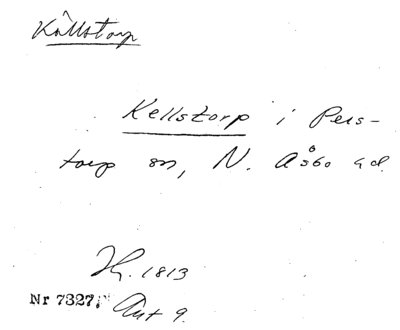 Källstorp
Kellstorp i Pers-
torp sn, N. Åsbo hd.
Hg. 1813
Nr 7327, Ant 9.